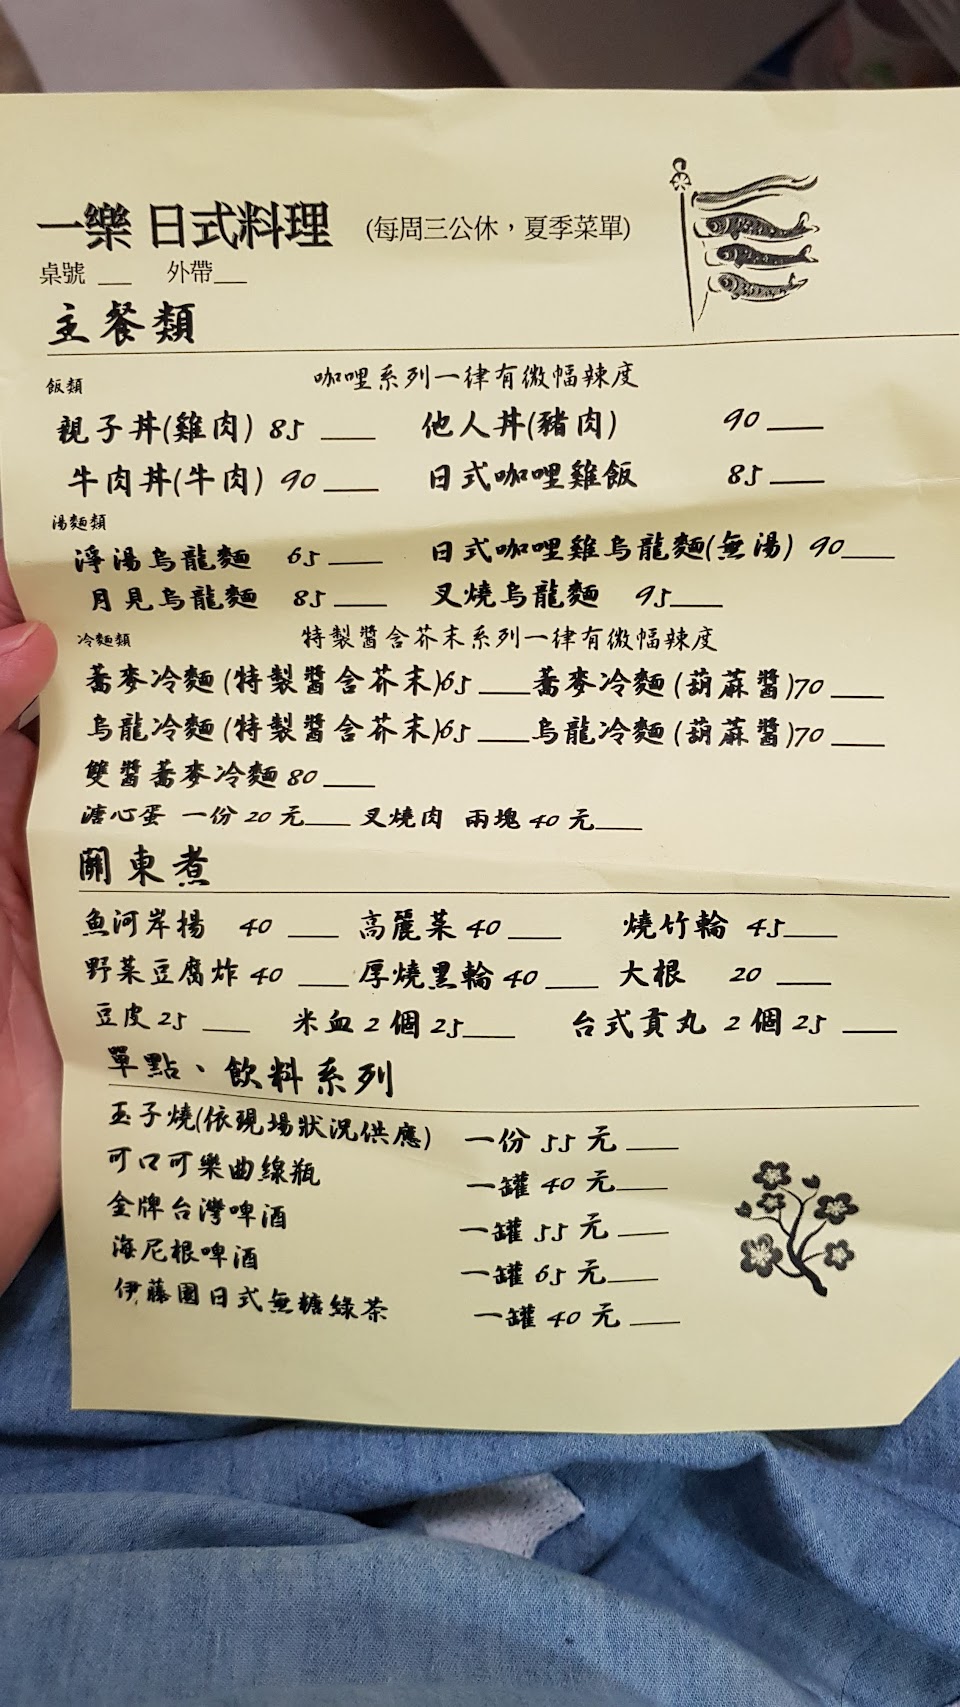 一樂 日式料理 (每周三公休，夏季菜單)
桌號 __ 外帶__
主餐類
飯類 咖哩系列一律有微幅辣度
親子丼(雞肉) 85 ___ 他人丼(豬肉) 90 ___
牛肉丼(牛肉) 90 ___ 日式咖哩雞飯 85 ___
湯麵類
淨湯烏龍麵 65 ___ 日式咖哩雞烏龍麵(無湯) 90___
月見烏龍麵 85 ___ 叉燒烏龍麵 95___
冷麵類 特製醬含芥末系列一律有微幅辣度
蕎麥冷麵 (特製醬含芥末)65 ___蕎麥冷麵 (葫蔴醬)70 ___
烏龍冷麵 (特製醬含芥末)65 ___烏龍冷麵 (葫蔴醬)70 ___
雙醬蕎麥冷麵 80 ___
溏心蛋 一份 20 元___ 叉燒肉 兩塊 40 元___
關東煮
魚河岸揚 40 ___ 高麗菜 40 ___ 燒竹輪 45___
野菜豆腐炸 40 ___ 厚燒黑輪 40 ___ 大根 20 ___
豆皮 25 ___ 米血 2 個 25___ 台式貢丸 2 個 25 ___
單點、飲料系列
玉子燒(依現場狀況供應) 一份 55 元 ___
可口可樂曲線瓶 一罐 40 元___
金牌台灣啤酒 一罐 55 元 ___
海尼根啤酒 一罐 65 元___
伊藤園日式無糖綠茶 一罐 40 元 ___